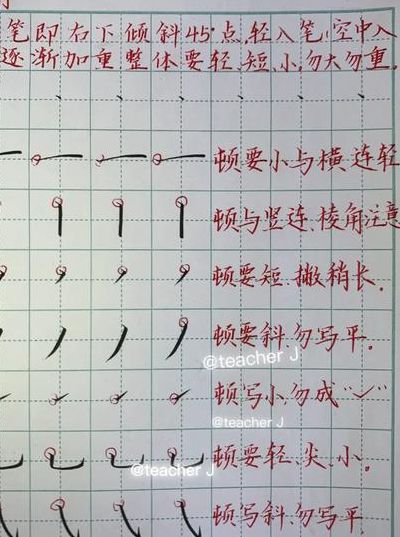 笔即右下倾斜45°点,轻入笔(空中入
逐渐加重整体要轻、短、小,勿大勿重.
顿要小与横、连轻
顿与竖连、棱角注意
顿要短、撇稍长.
顿要斜、勿写平.
@teacher J
顿写小、勿成“✓”
@teacher J
顿要轻、尖、小。
@teacher J
顿写斜、勿写平